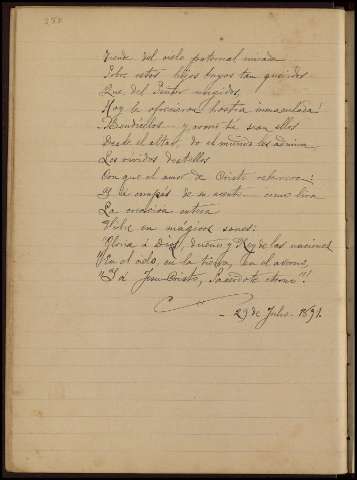 Tiende del cielo paternal mirada
Sobre estos hijos tuyos tan queridos
Que del Señor ungidos,
Hoy le ofrecieron hostia inmaculada!
Bendícelos y sean ellos
Desde el altar, do el mundo les admira
Los vívidos destellos
Con que el amor de Cristo reverbera:
Y al compás de su acento como lira
La creación entera
Vibre en mágicos sones:
"Gloria á Dios, dueño y Rey de las naciones
"En el cielo, en la tierra, en el averno,
"Y á Jesu-Cristo, Sacerdote eterno"!
29 de Julio 1891.